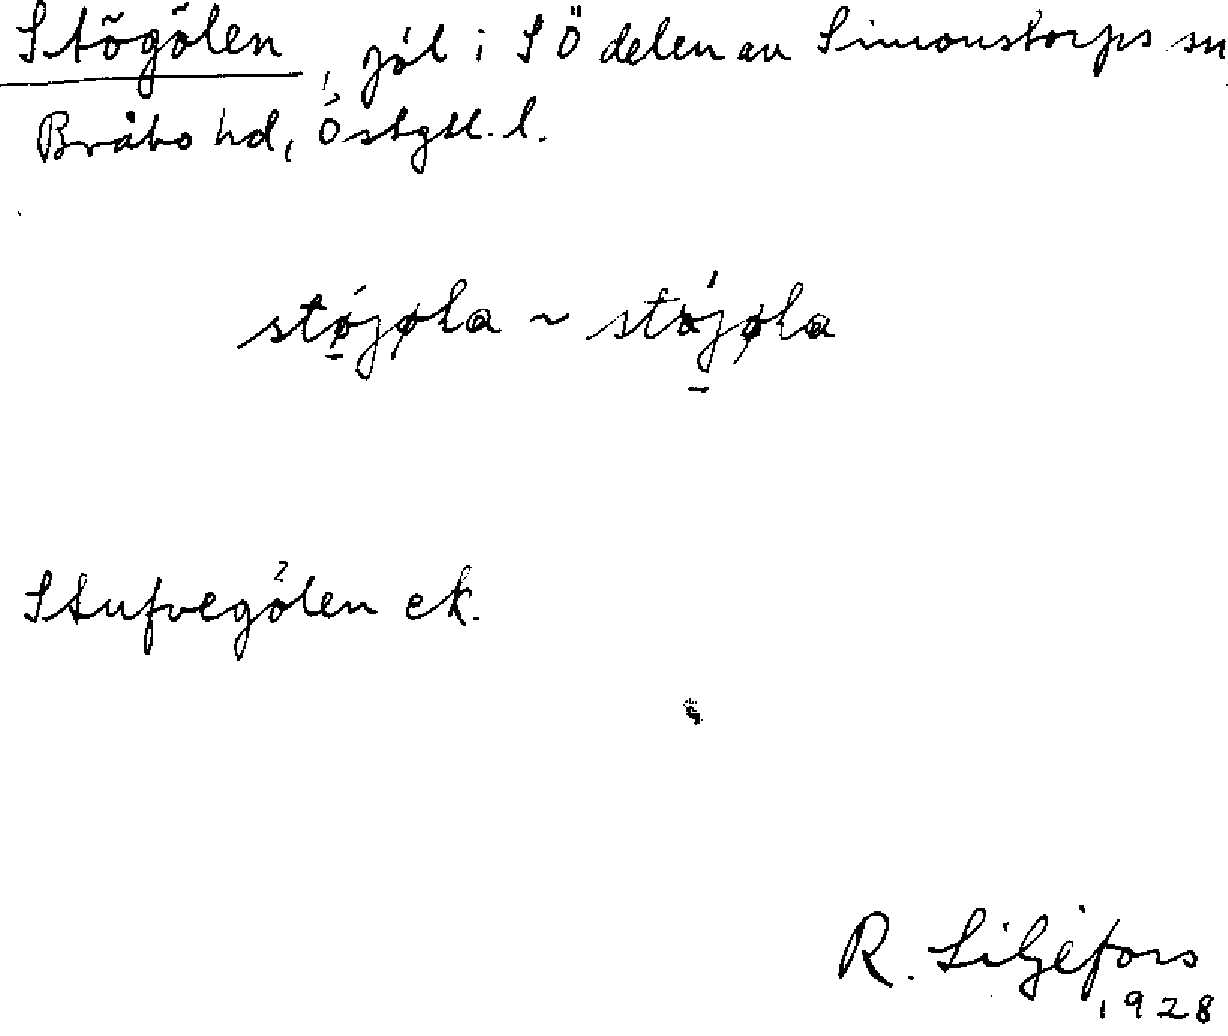 Stögölen, göl i SÖ delen av Simonstorps sn
Bråbo hd, Östgtl. l.
støjøla ~ støjøla
Stufvegölen ek.
R. Liljefors
1928